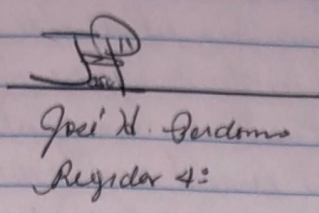 José H. Perdomo
Regidor 4: